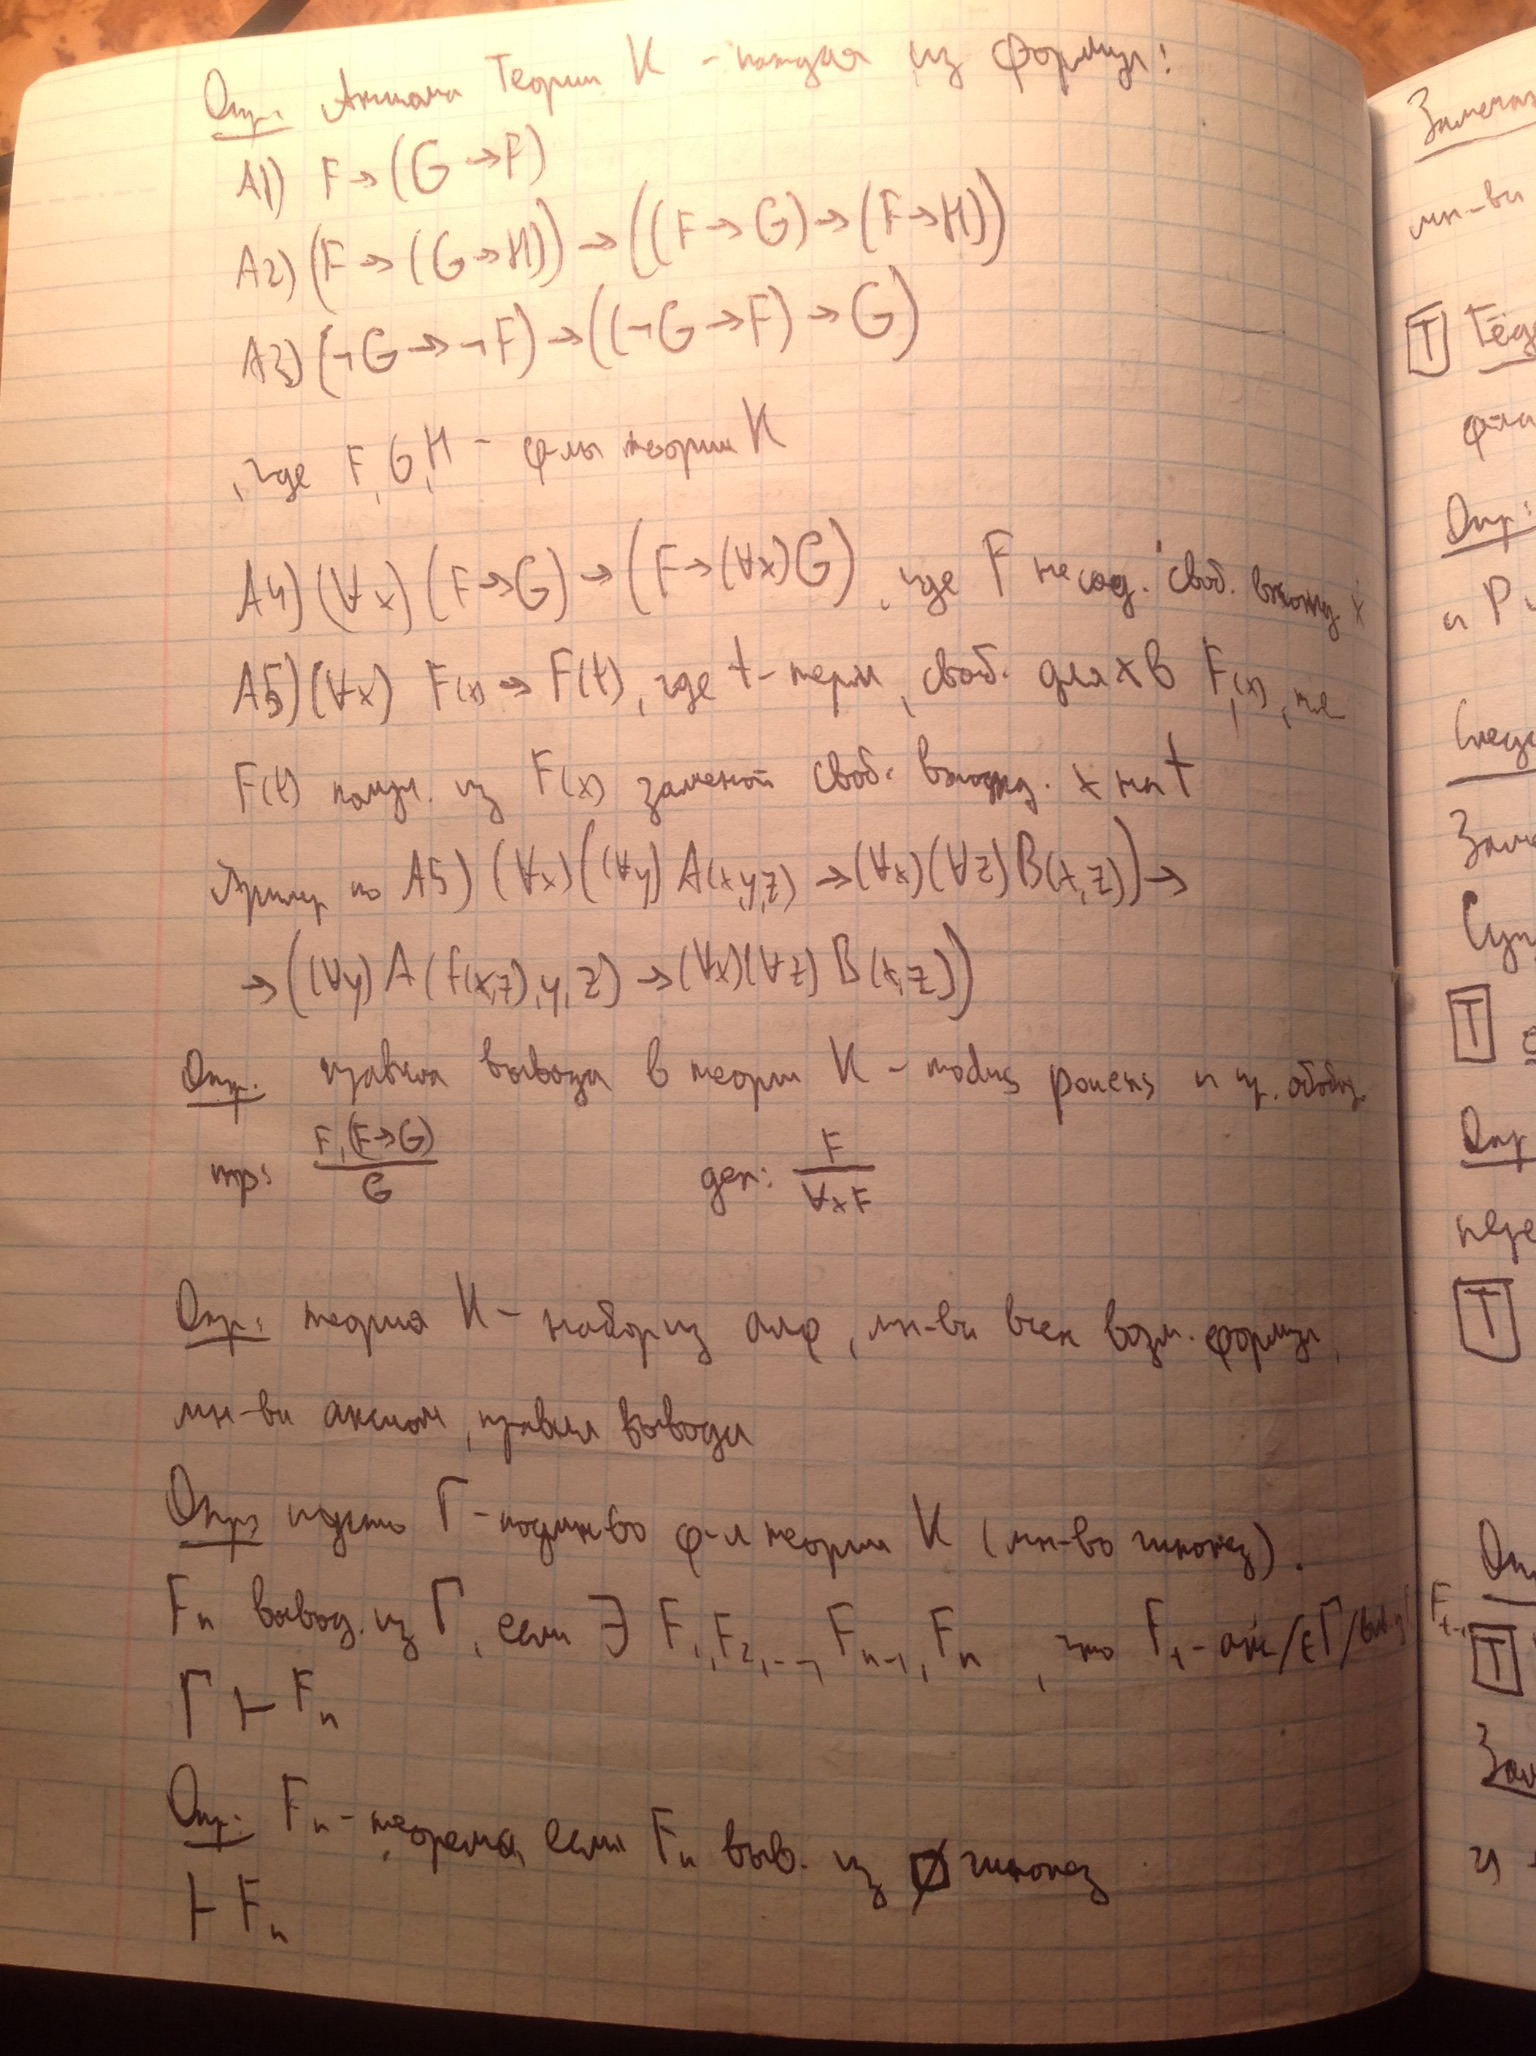 Опр: Аксиома Теории К - каждая из формул:
А1) F → (G → F)
А2) (F → (G → H)) → ((F → G) → (F → H))
А3) (¬G → ¬F) → ((¬G → F) → G)
, где F, G, H - ф-лы теории К
А4) (∀x) (F → G) → (F → (∀x)G), где F не сод. своб. вхожд x
А5) (∀x) F(x) → F(t), где t - терм, своб. для x в F(x), т.е
F(t) получ. из F(x) заменой своб. вхожд. x на t
Пример по А5) (∀x)((∀y) A(x,y,z) → (∀x)(∀z) B(x,z)) →
→ ((∀y) A(f(x,z), y, z) → (∀x)(∀z) B(x,z))
Опр. правила вывода в теории К - modus ponens и пр. обобщ.
mp: F, (F→G) / G gen: F / ∀xF
Опр: теория К - набор из алф, мн-ва всех возм. формул,
мн-ва аксиом, правил вывода
Опр: пусть Г - подмн-во ф-л теории К (мн-во гипотез).
Fn вывод. из Г, если ∃ F1, F2, ..., Fn-1, Fn , что Ft - акс/∈Г/
Г ⊢ Fn
Опр: Fn - теорема, если Fn выв. из ∅ гипотез
⊢ Fn
Замечан
мн-ва
Т
ф-ла
Опр:
и Р
След
Т
Опр
Т
Т